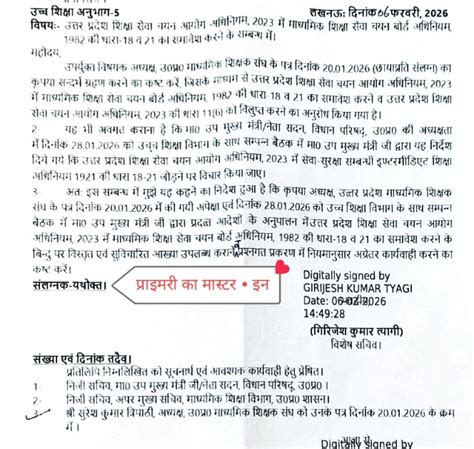 उच्च शिक्षा अनुभाग-5 लखनऊः दिनांक 06 फरवरी, 2026
विषयः- उत्तर प्रदेश शिक्षा सेवा चयन आयोग अधिनियम, 2023 में माध्यमिक शिक्षा सेवा चयन बोर्ड अधिनियम,
1982 की धारा-18 व 21 का समावेश करने के सम्बन्ध में।
महोदय,
उपर्युक्त विषयक अध्यक्ष, उ०प्र० माध्यमिक शिक्षक संघ के पत्र दिनांक 20.01.2026 (छायाप्रति संलग्न) का
कृपया सन्दर्भ ग्रहण करने का कष्ट करें, जिसके माध्यम से उत्तर प्रदेश शिक्षा सेवा चयन आयोग अधिनियम, 2023
में माध्यमिक शिक्षा सेवा चयन बोर्ड अधिनियम, 1982 की धारा-18 व 21 का समावेश करने व उत्तर प्रदेश शिक्षा
सेवा चयन आयोग अधिनियम, 2023 की धारा 11(6) को विलुप्त करने का अनुरोध किया गया है।
2 यह भी अवगत कराना है कि मा० उप मुख्य मंत्री/नेता सदन, विधान परिषद्, उ०प्र० की अध्यक्षता
में दिनांक 28.01.2026 को उच्च शिक्षा विभाग के साथ सम्पन्न बैठक में मा० उप मुख्य मंत्री जी द्वारा यह निर्देश
दिये गये कि उत्तर प्रदेश शिक्षा सेवा चयन आयोग अधिनियम, 2023 में सेवा-सुरक्षा सम्बन्धी इण्टरमीडिएट शिक्षा
अधिनियम 1921 की धारा 18-21 जोड़ने पर विचार किया जाए।
3 अतः इस सम्बन्ध में मुझे यह कहने का निदेश हुआ है कि कृपया अध्यक्ष, उत्तर प्रदेश माध्यमिक शिक्षक
संघ के पत्र दिनांक 20.01.2026 में की गयी अपेक्षा एवं दिनांक 28.01.2026 को उच्च शिक्षा विभाग के साथ सम्पन्न
बैठक में मा० उप मुख्य मंत्री जी द्वारा प्रदत्त आदेशों के अनुपालन में उत्तर प्रदेश शिक्षा सेवा चयन आयोग
अधिनियम, 2023 में माध्यमिक शिक्षा सेवा चयन बोर्ड अधिनियम, 1982 की धारा-18 व 21 का समावेश करने के
बिन्दु पर विस्तृत एवं सुविचारित आख्या उपलब्ध कराने प्रश्नगत प्रकरण में नियमानुसार अग्रेतर कार्यवाही करने का
कष्ट करें।
संलग्नक-यथोक्त। प्राइमरी का मास्टर • इन
Digitally signed by
GIRIJESH KUMAR TYAGI
Date: 06-02-2026
14:49:28
(गिरिजेश कुमार त्यागी)
विशेष सचिव।
संख्या एवं दिनांक तदैव।
प्रतिलिपि निम्नलिखित को सूचनार्थ एवं आवश्यक कार्यवाही हेतु प्रेषित।
1- निजी सचिव, मा० उप मुख्य मंत्री जी/नेता सदन, विधान परिषद्, उ०प्र०।
2- निजी सचिव, अपर मुख्य सचिव, माध्यमिक शिक्षा विभाग, उ०प्र० शासन।
3- श्री सुरेश कुमार त्रिपाठी, अध्यक्ष, उ०प्र० माध्यमिक शिक्षक संघ को उनके पत्र दिनांक 20.01.2026 के क्रम
में।
आज्ञा से
Digitally signed by